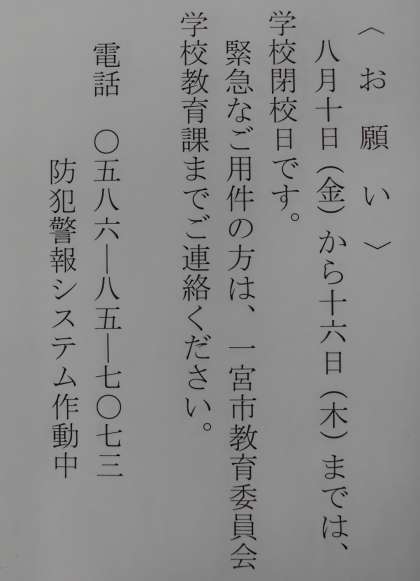 〈お願い〉
八月十日（金）から十六日（木）までは、
学校閉校日です。
緊急なご用件の方は、一宮市教育委員会
学校教育課までご連絡ください。
電話　〇五八六―八五―七〇七三
防犯警報システム作動中